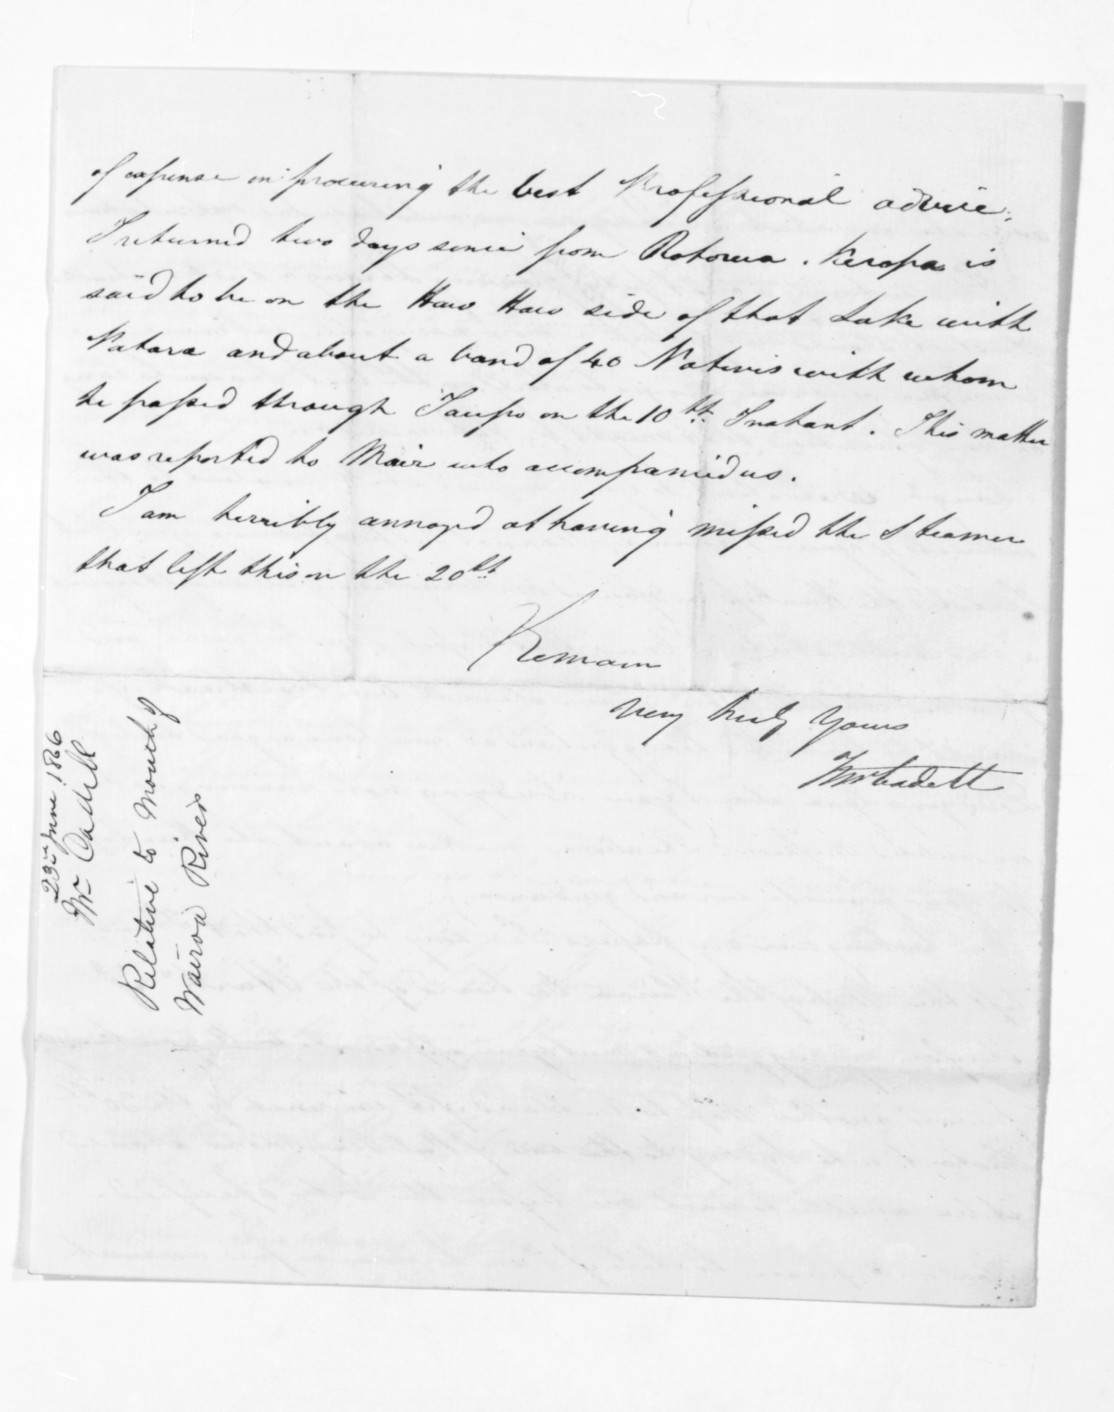 of expense in procuring the best Professional advice.
I returned two days since from Rotorua. Kereopa is
said to be on the Hau Hau side of that Lake with
Patara and about a band of 40 Natives with whom
he passed through Taupo on the 10th Instant. This matter
was reported to Mair who accompanied us.
I am terribly annoyed at having missed the Steamer
that left this on the 20th
Remain
Very truly Yours
Cadell
23rd June 1866
Mr Cadell
Relative to Mouth of
Wairoa River